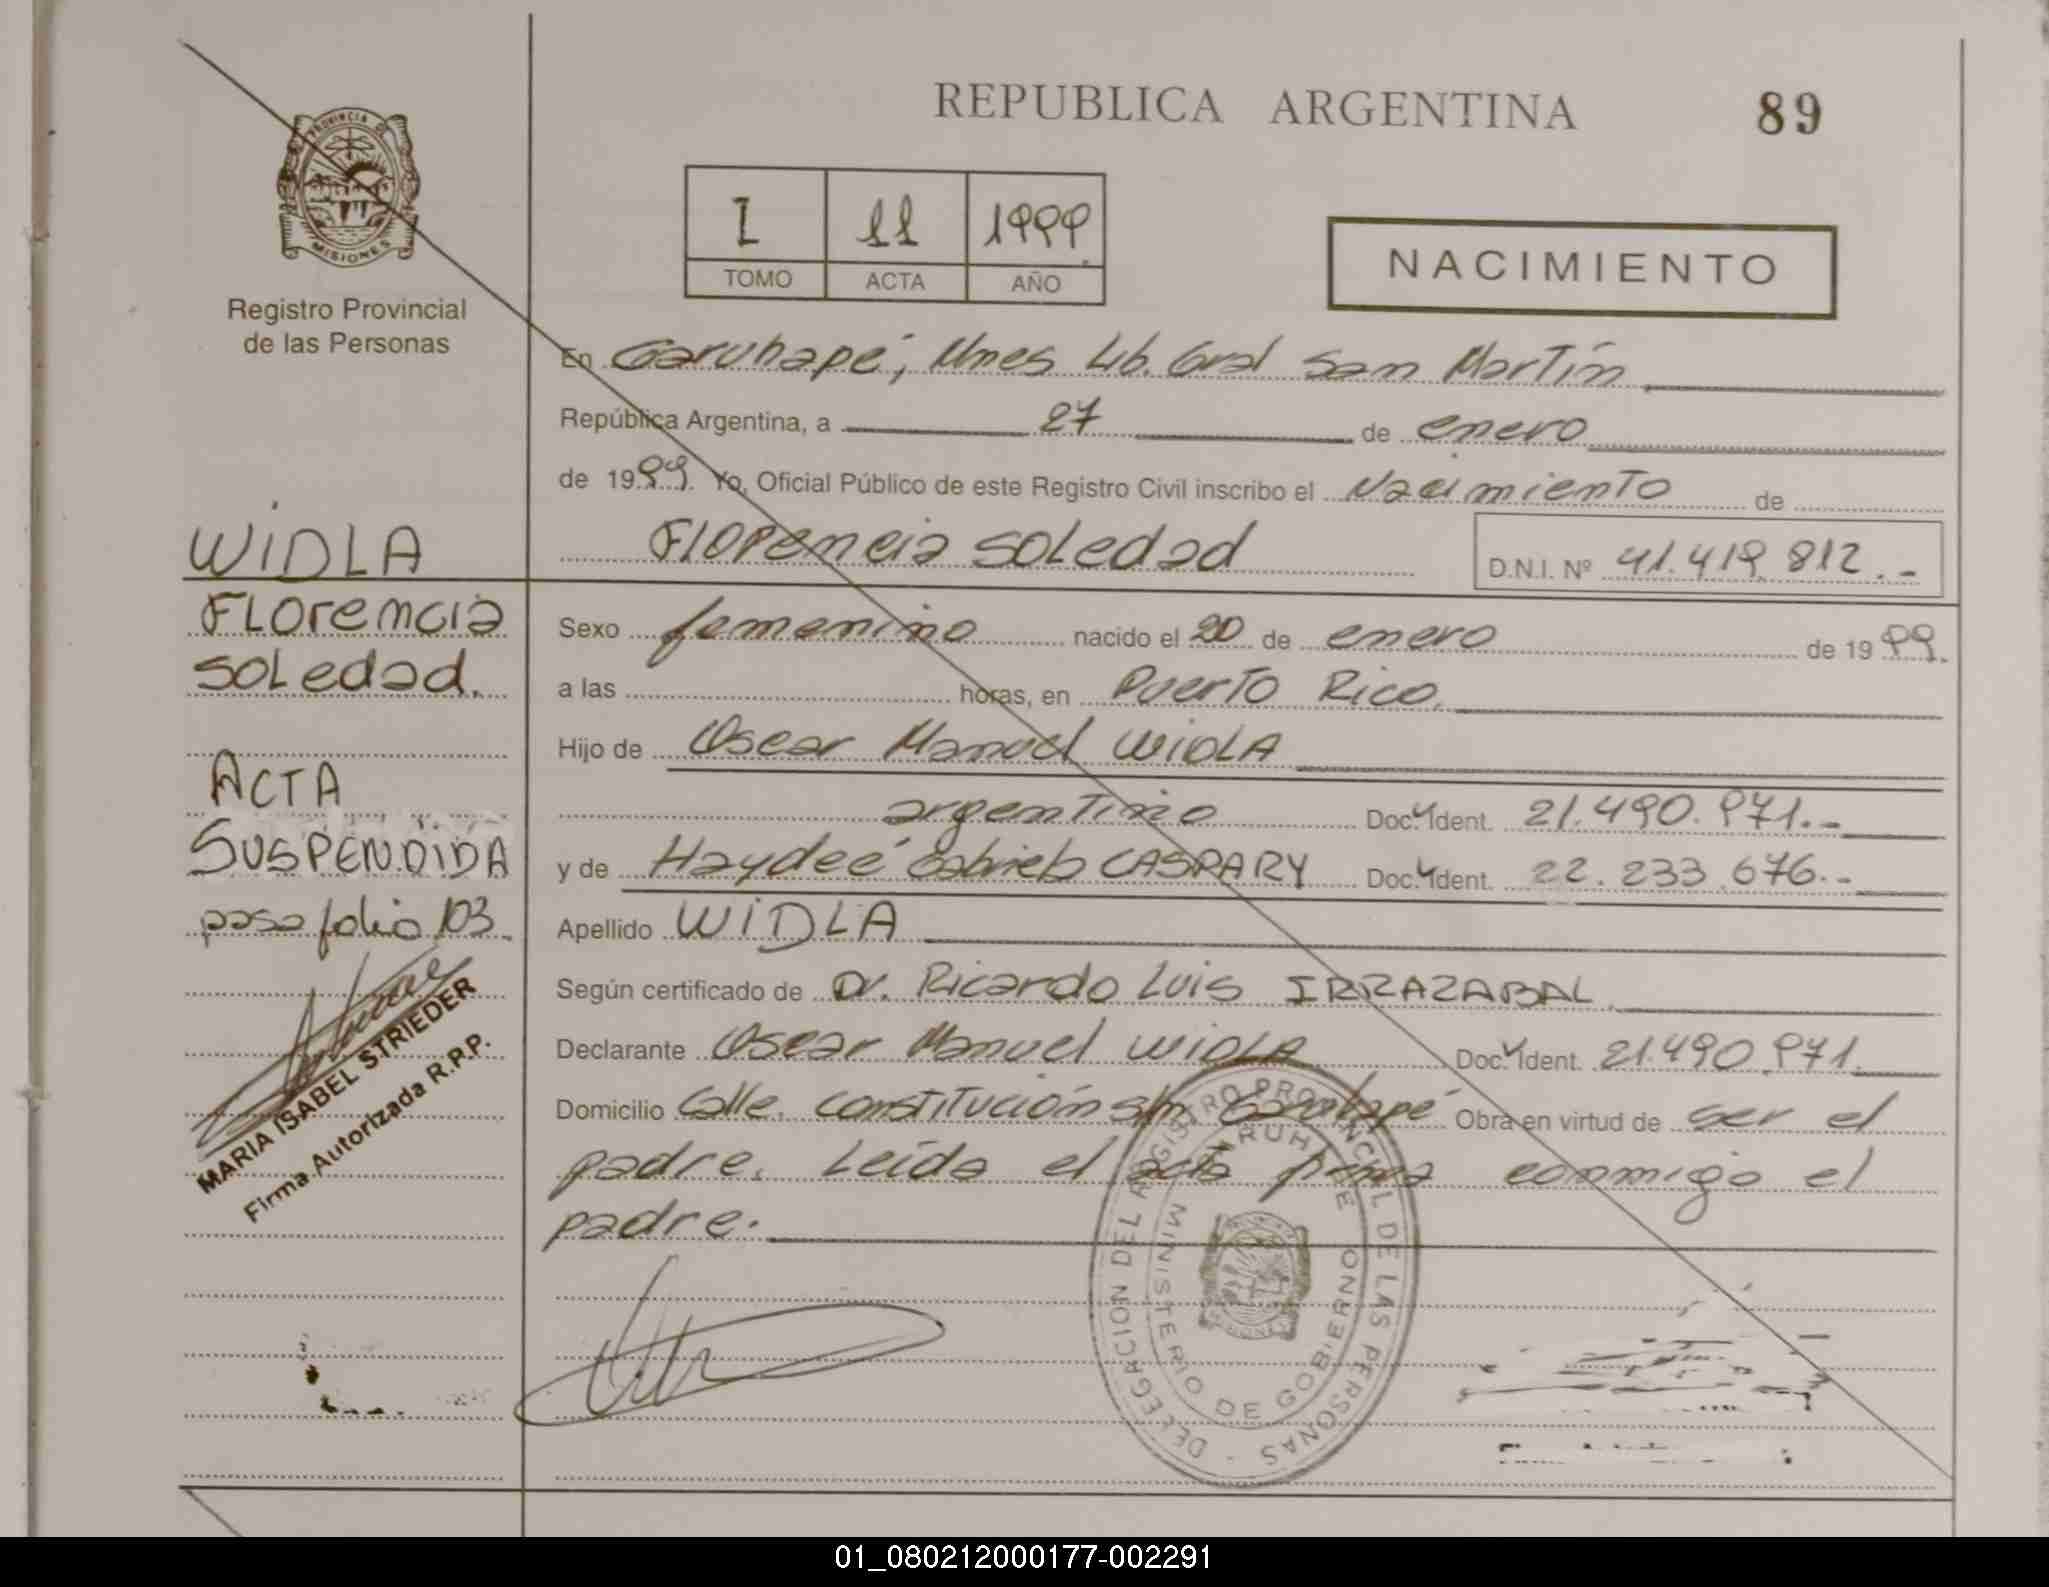 REPUBLICA ARGENTINA 89
PROVINCIA DE MISIONES
Registro Provincial
de las Personas
I 11 1999
TOMO ACTA AÑO
NACIMIENTO
En Garuhapé, Mnes Lib. Gral San Martín
República Argentina, a 27 de enero
de 1999. Yo, Oficial Público de este Registro Civil inscribo el Nacimiento de
Florencia Soledad D.N.I. Nº 41.419.812.-
WIDLA
Florencia
Soledad.
ACTA
SUSPENDIDA
pasa folio 103.
MARIA ISABEL STRIEDER
Firma Autorizada R.R.P.
Sexo femenino nacido el 20 de enero de 1999.
a las horas, en Puerto Rico.
Hijo de Oscar Manuel WIDLA
argentino Doc. Ident. 21.490.971.-
y de Haydeé Gabriela CASPARY Doc. Ident. 22.233.676.-
Apellido WIDLA
Según certificado de Dr. Ricardo Luis IRRAZABAL
Declarante Oscar Manuel WIDLA Doc. Ident. 21.490.971.
Domicilio Calle. constitución s/n Garuhapé Obra en virtud de ser el
padre. Leída el acta firma conmigo el
padre.
DELEGACION DEL REGISTRO PROVINCIAL DE LAS PERSONAS
MINISTERIO DE GOBIERNO
01_080212000177-002291